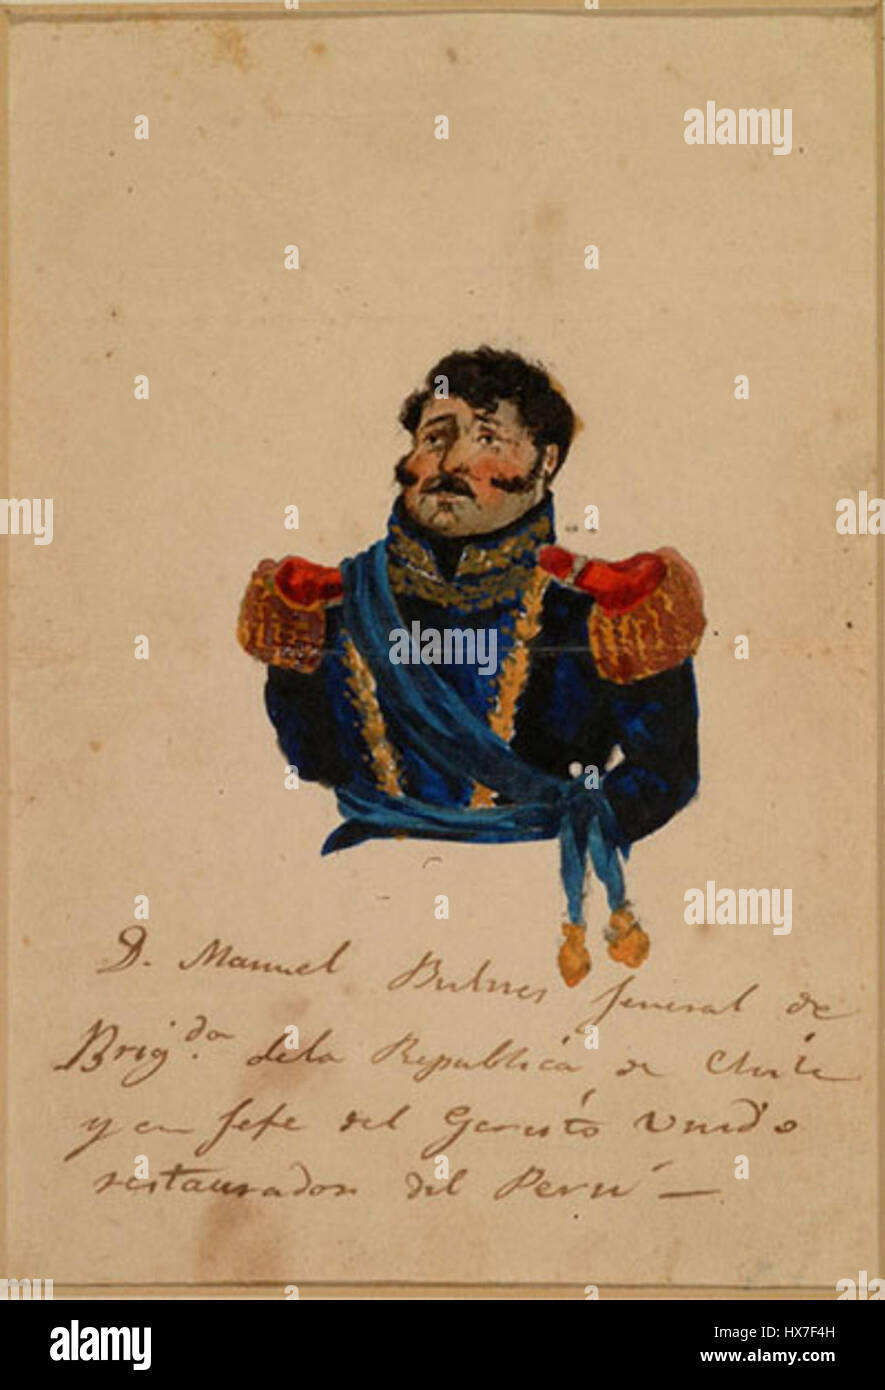 D. Manuel Bulnes General de
Brig.da de la Republica de Chile
y en Jefe del Egercito Unido
restaurador del Perú —
alamy
a
Image ID: HX7F4H
www.alamy.com